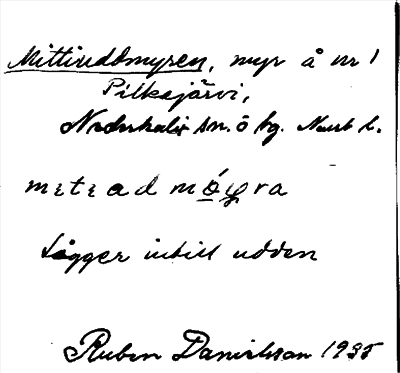 Mittiuddmyren, myr å nr 1
Pilkajärvi,
Nederkalix sn. ö hg. Nbt l.
mɩtɩ a d m ó̲y̲ra
Ligger intill udden
Ruben Danielsson 1935